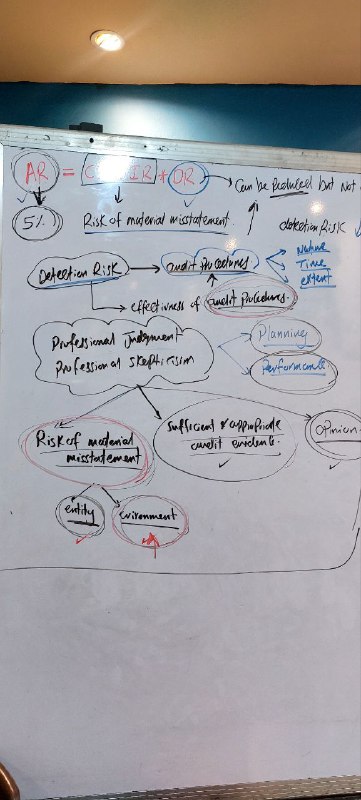 AR = C × IR + DR → Can be Reduced but not
5% Risk of material misstatement. detection RISK
Detection RISK → audit procedures Nature
Time
extent
→ effectivness of audit procedures.
Professional Judgment
Professional Skepticism
Planning
Performance
Risk of material
misstatement
Sufficient & appropriate
audit evidence.
Opinion
entity
environment